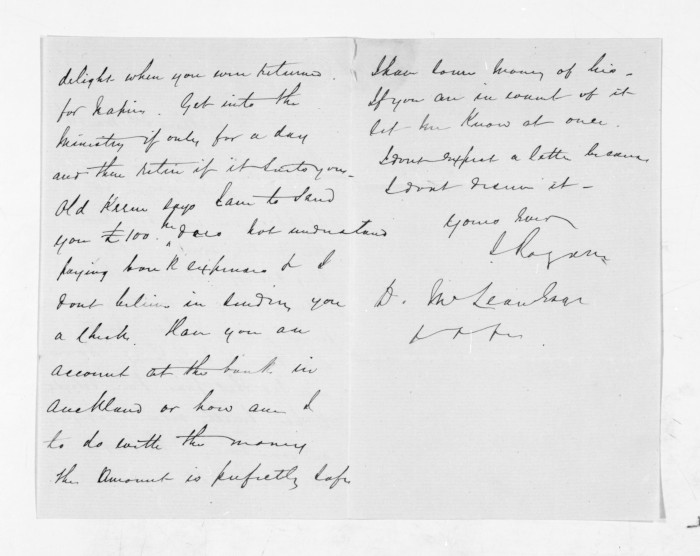 delight when you were returned
for Napier. Get into the
Ministry if only for a day
and then retire if it suits you.
Old says I am to send
you £100. he does not understand
paying bank expenses & I
dont believe in sending you
a check. Have you an
account at the bank in
Auckland or how am I
to do with the money
the amount is perfectly safe
I have some money of his –
If you are in want of it
let me know at once.
I dont expect a letter because
I dont deserve it –
Yours ever
J Rogan
D. McLean Esqr